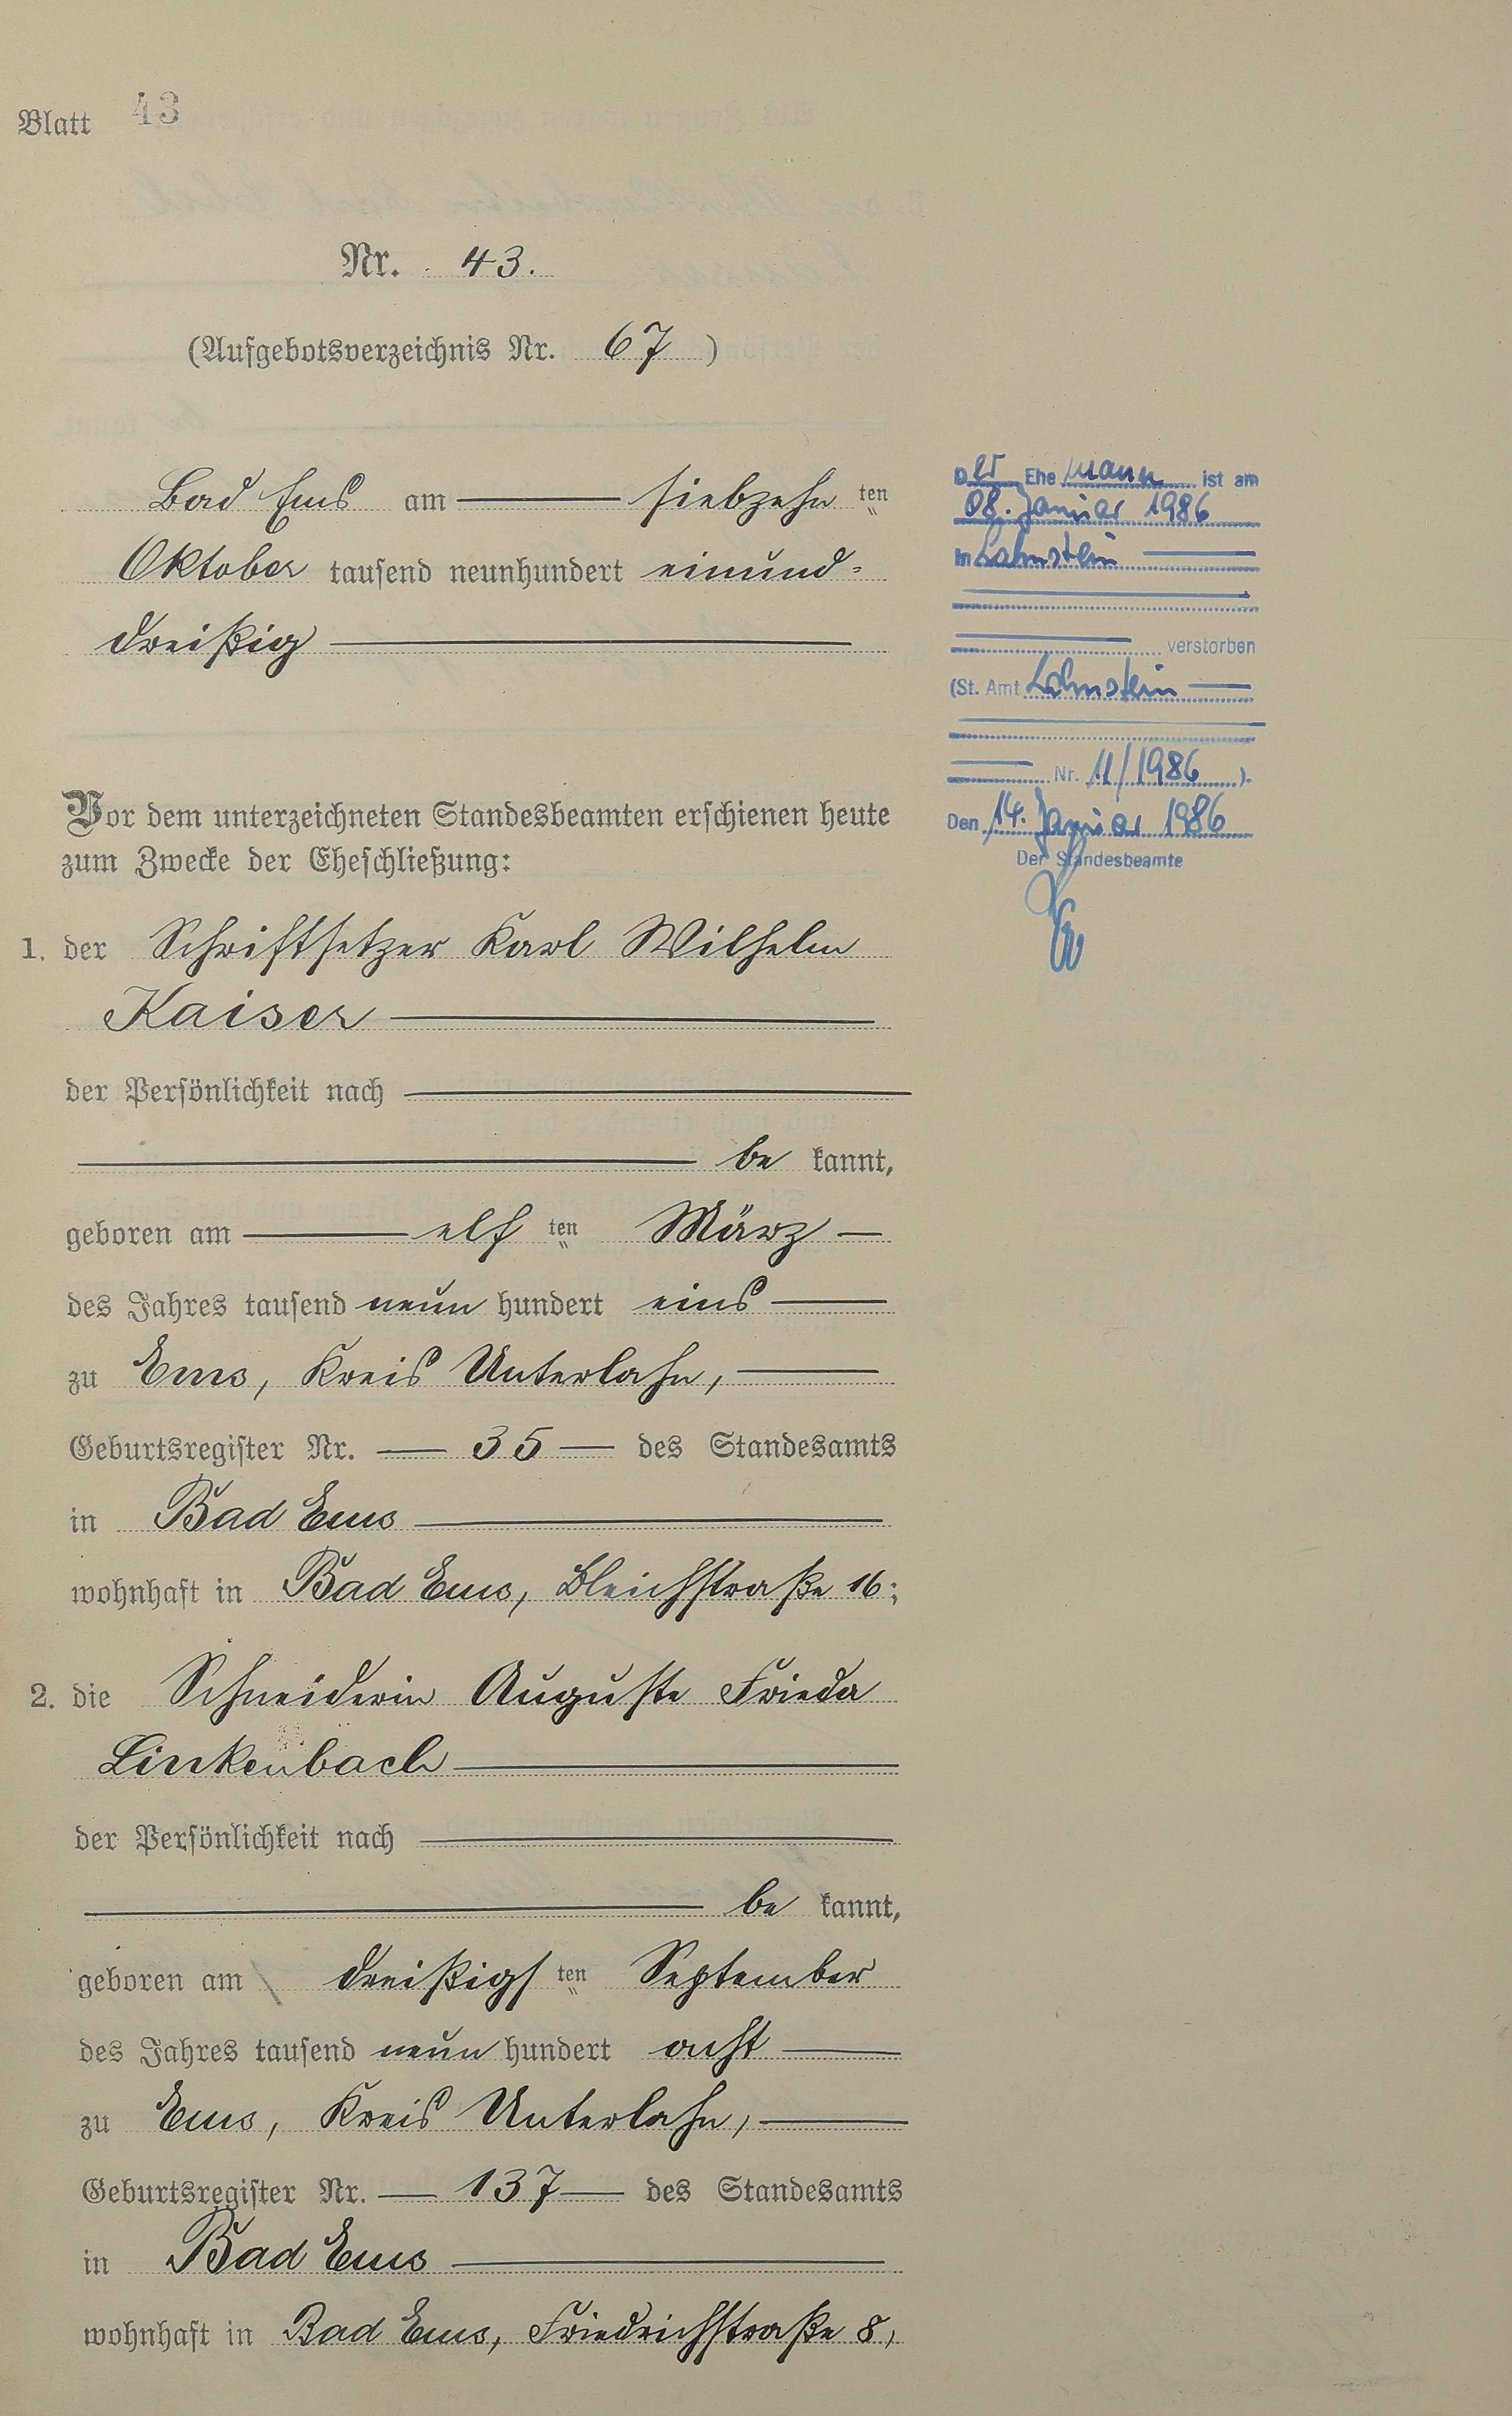 Blatt 43
Nr. 43.
(Aufgebotsverzeichnis Nr. 67 )
Bad Ems am siebzehn ten
Oktober tausend neunhundert einund=
dreißig
Vor dem unterzeichneten Standesbeamten erschienen heute
zum Zwecke der Eheschließung:
1. der Schriftsetzer Karl Wilhelm
Kaiser
der Persönlichkeit nach
be kannt,
geboren am elf ten März
des Jahres tausend neun hundert eins
zu Ems, Kreis Unterlahn,
Geburtsregister Nr. 35 des Standesamts
in Bad Ems
wohnhaft in Bad Ems, Bleichstraße 16;
2. die Schneiderin Auguste Frieda
Linkenbach
der Persönlichkeit nach
be kannt,
geboren am dreißigs ten September
des Jahres tausend neun hundert acht
zu Ems, Kreis Unterlahn,
Geburtsregister Nr. 137 des Standesamts
in Bad Ems
wohnhaft in Bad Ems, Friedrichstraße 8,
Der Ehemann ist am
08. Januar 1986
in Lahnstein
verstorben
(St. Amt Lahnstein
Nr. 11/1986 ).
Den 14. Januar 1986
Der Standesbeamte